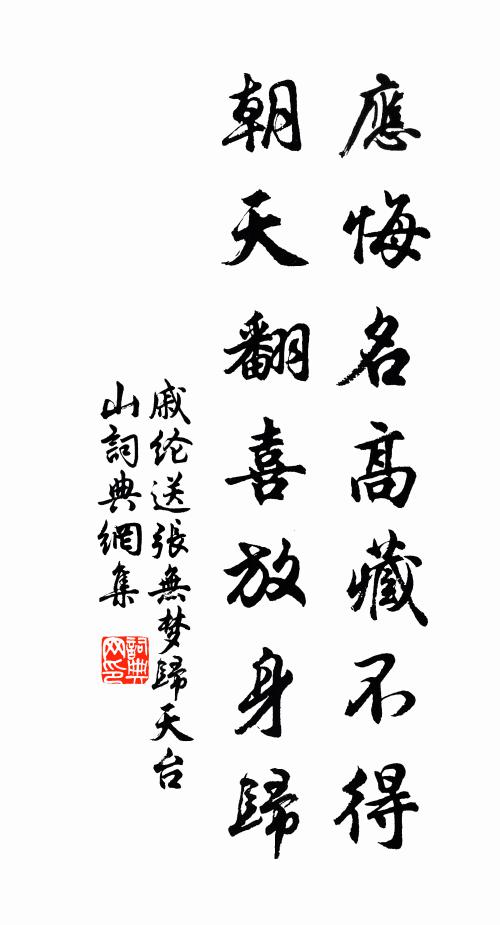 應悔名高藏不得
朝天翻喜放身歸
戚纶送張無梦歸天台
山詞典網集
詞典
网印